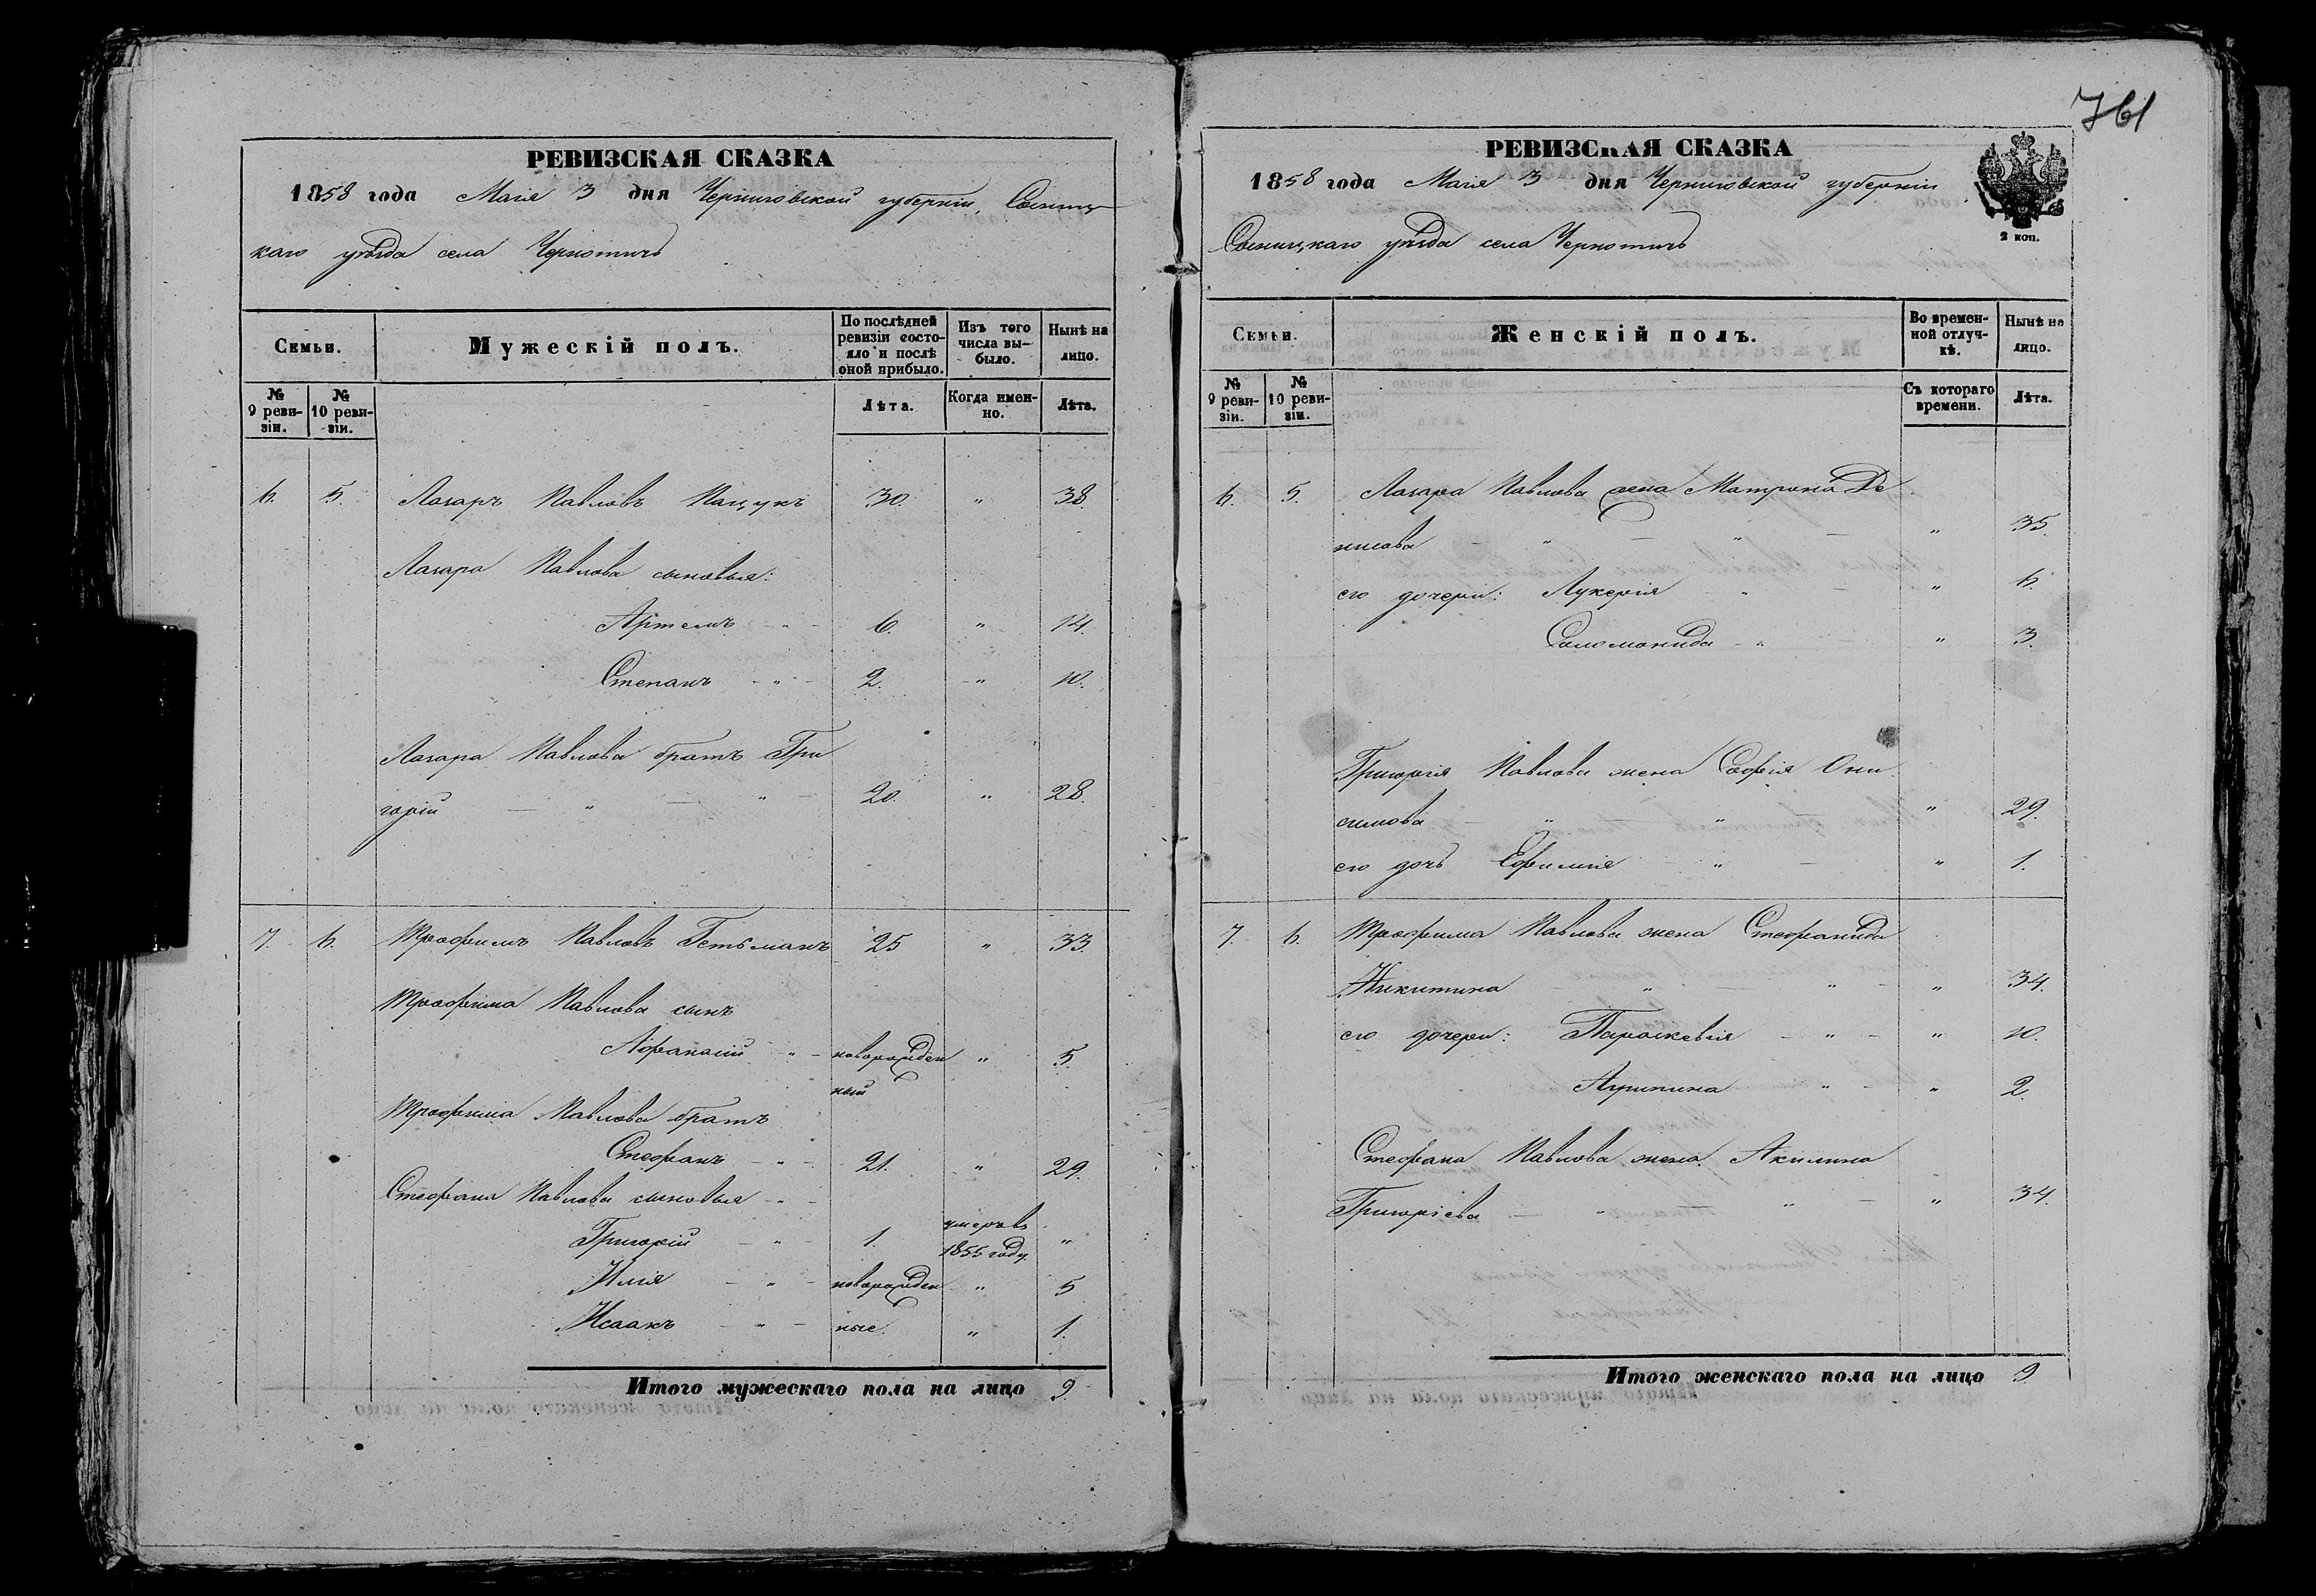 761
РЕВИЗСКАЯ СКАЗКА
1858 года Маія 3 дня Черниговской губерніи, Сосниц-
каго уѣзда села Чернотичъ
Семьи.
Мужескій полъ.
По послѣдней ревизіи состояло и послѣ оной прибыло.
Изъ того числа выбыло.
Нынѣ на лицо.
№ 9 ревизіи.
№ 10 ревизіи.
Лѣта.
Когда именно.
Лѣта.
6. 5. Лазаръ Павловъ Пацукъ 30. " 38.
Лазаря Павлова сыновья:
Артемъ - " - 6. " 14.
Степанъ - " - 2. " 10.
Лазаря Павлова братъ Гри
горій - " - " - 20. " 28.
7. 6. Трофимъ Павловъ Гетьманъ 25 " 33.
Трофима Павлова сынъ
Афанасій " - новорожден " 5.
ный
Трофима Павлова братъ
Стефанъ - " - 21. " 29.
Стефана Павлова сыновья - " -
Григорій - " - 1. умеръ въ "
1855 году
Илія - " - новорожден " 5
Исаакъ - " - ные. " 1.
Итого мужескаго пола на лицо 9
РЕВИЗСКАЯ СКАЗКА
1858 года Маія 3 дня Черниговской губерніи
2 коп.
Сосницкаго уѣзда села Чернотичъ
Семьи.
Женскій полъ.
Во временной отлучкѣ.
Нынѣ на лицо.
№ 9 ревизіи.
№ 10 ревизіи.
Съ котораго времени.
Лѣта.
6. 5. Лазаря Павлова жена Матрона Де
нисова - " - " - " 35.
его дочери: Лукерія " - " 6.
Соломонида - " " 3.
Григорія Павлова жена Софія Они
симова - " " " 29.
его дочь Ефимія " - " 1.
7. 6. Трофима Павлова жена Стефанида
Никитина - " - " - " 34.
его дочери: Параскевія - " - " 10.
Агрипина - " - " 2.
Стефана Павлова жена Акилина
Григоріева - " " - " 34.
Итого женскаго пола на лицо 9